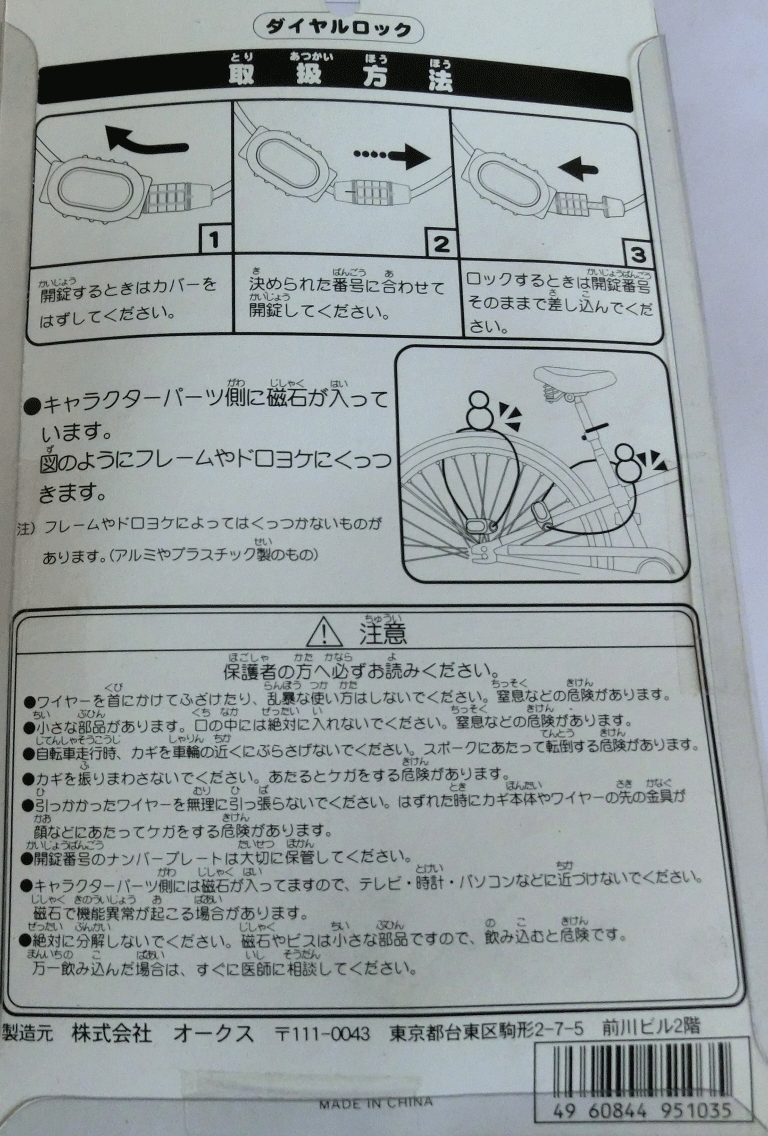 ダイヤルロック
取扱方法
とり あつかい ほう ほう
1
2
3
開錠するときはカバーを
はずしてください。
決められた番号に合わせて
開錠してください。
ロックするときは開錠番号
そのままで差し込んでくだ
さい。
●キャラクターパーツ側に磁石が入って
います。
図のようにフレームやドロヨケにくっつ
きます。
注）フレームやドロヨケによってはくっつかないものが
あります。(アルミやプラスチック製のもの)
注意
保護者の方へ必ずお読みください。
●ワイヤーを首にかけてふざけたり、乱暴な使い方はしないでください。窒息などの危険があります。
●小さな部品があります。口の中には絶対に入れないでください。窒息などの危険があります。
●自転車走行時、カギを車輪の近くにぶらさげないでください。スポークにあたって転倒する危険があります。
●カギを振りまわさないでください。あたるとケガをする危険があります。
●引っかかったワイヤーを無理に引っ張らないでください。はずれた時にカギ本体やワイヤーの先の金具が
顔などにあたってケガをする危険があります。
●開錠番号のナンバープレートは大切に保管してください。
●キャラクターパーツ側には磁石が入ってますので、テレビ・時計・パソコンなどに近づけないでください。
磁石で機能異常が起こる場合があります。
●絶対に分解しないでください。磁石やビスは小さな部品ですので、飲み込むと危険です。
万一飲み込んだ場合は、すぐに医師に相談してください。
製造元 株式会社 オークス 〒111-0043 東京都台東区駒形2-7-5 前川ビル2階
MADE IN CHINA
49 60844 951035